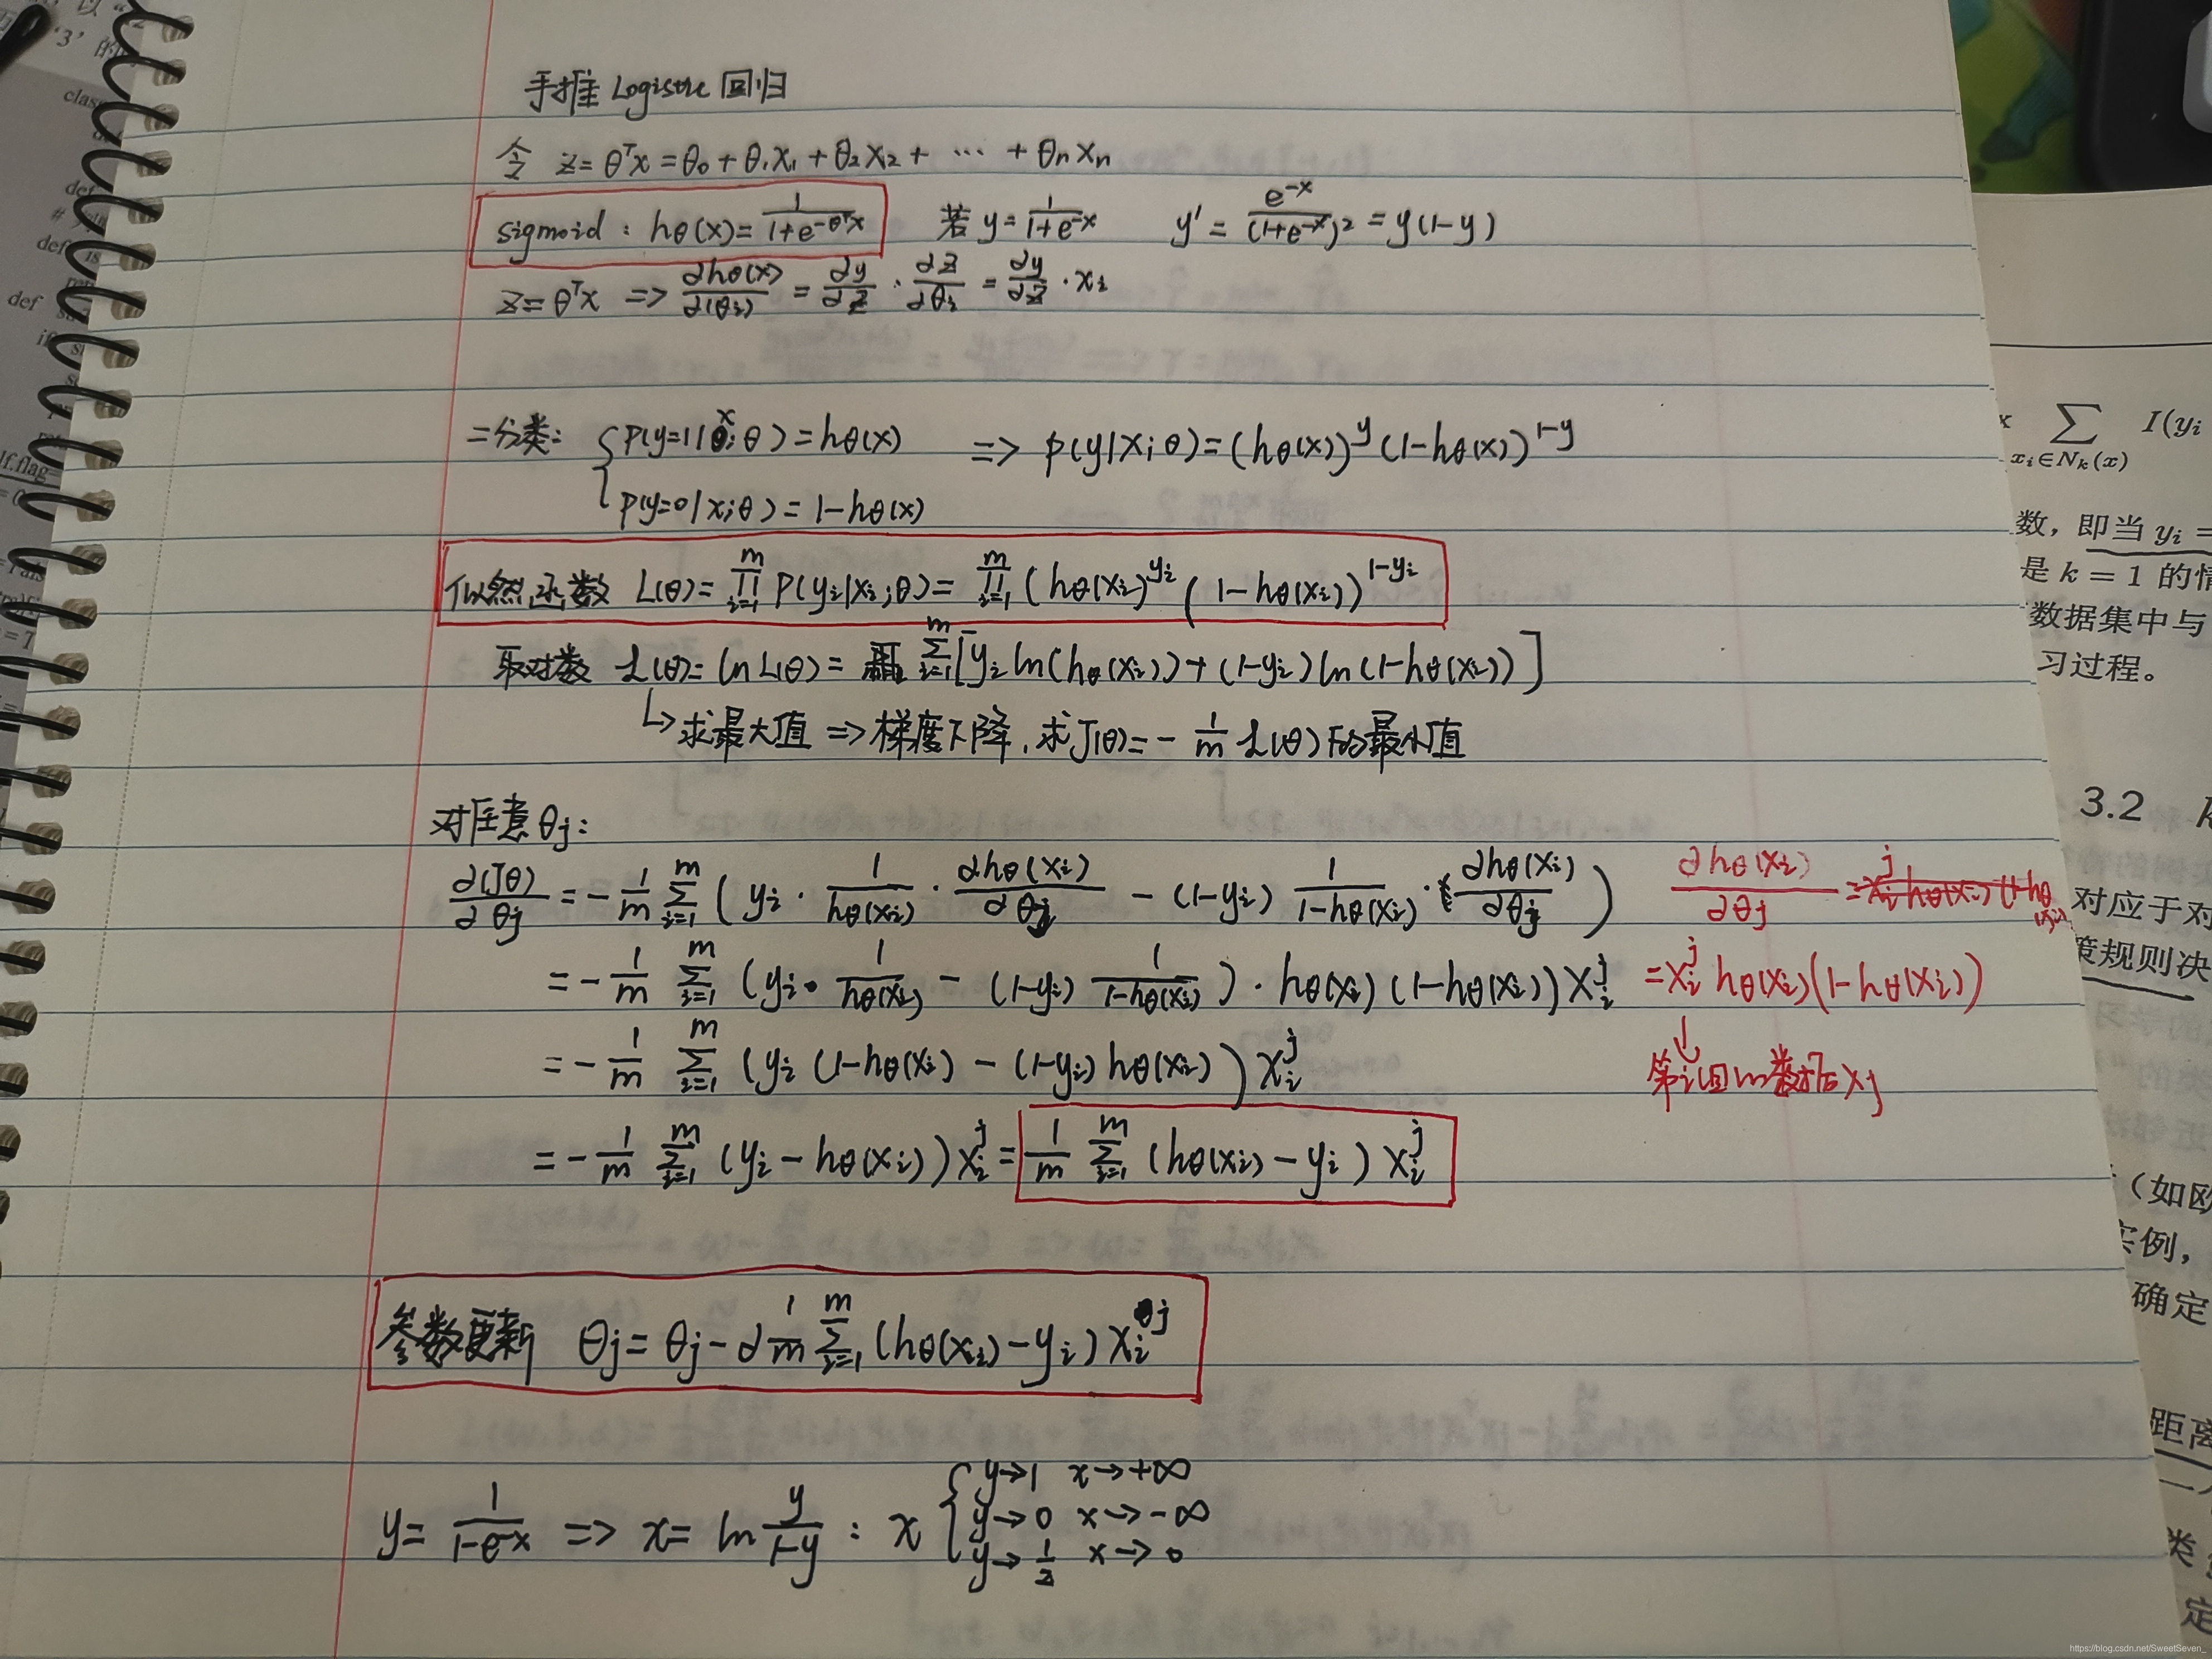 手推 Logistic 回归
令 z = θᵀx = θ₀ + θ₁x₁ + θ₂x₂ + ⋯ + θₙxₙ
sigmoid : hθ(x) = 1/(1+e^(-θᵀx)) 若 y = 1/(1+e^(-x)) y' = e^(-x)/(1+e^(-x))² = y(1-y)
z = θᵀx => ∂hθ(x)/∂(θᵢ) = ∂y/∂z · ∂z/∂θᵢ = ∂y/∂z · xᵢ
二分类: { P(y=1|x;θ) = hθ(x) => P(y|x;θ) = (hθ(x))^y (1-hθ(x))^(1-y)
P(y=0|x;θ) = 1-hθ(x)
似然函数 L(θ) = ∏_{i=1}^{m} P(yᵢ|xᵢ;θ) = ∏_{i=1}^{m} (hθ(xᵢ)^(yᵢ) (1-hθ(xᵢ))^(1-yᵢ)
取对数 ℒ(θ) = ln L(θ) = ∑_{i=1}^{m} [yᵢ ln(hθ(xᵢ)) + (1-yᵢ) ln(1-hθ(xᵢ))]
↳ 求最大值 => 梯度下降, 求 J(θ) = - 1/m ℒ(θ) 的最小值
对任意 θj:
∂(Jθ)/∂θj = - 1/m ∑_{i=1}^{m} ( yᵢ · 1/hθ(xᵢ) · ∂hθ(xᵢ)/∂θj - (1-yᵢ) 1/(1-hθ(xᵢ)) · ∂hθ(xᵢ)/∂θj )
= - 1/m ∑_{i=1}^{m} (yᵢ · 1/hθ(xᵢ) - (1-yᵢ) 1/(1-hθ(xᵢ)) ) · hθ(xᵢ) (1-hθ(xᵢ)) xᵢʲ
= - 1/m ∑_{i=1}^{m} (yᵢ (1-hθ(xᵢ) - (1-yᵢ) hθ(xᵢ) ) xᵢʲ
= - 1/m ∑_{i=1}^{m} (yᵢ - hθ(xᵢ)) xᵢʲ = 1/m ∑_{i=1}^{m} (hθ(xᵢ) - yᵢ) xᵢʲ
∂hθ(xᵢ)/∂θj = xᵢʲ hθ(xᵢ) (1-hθ(xᵢ))
= xᵢʲ hθ(xᵢ)(1-hθ(xᵢ))
↓
第i组 数据 xj
参数更新 θj = θj - α 1/m ∑_{i=1}^{m} (hθ(xᵢ) - yᵢ) xᵢʲ
y = 1/(1-e^(-x)) => x = ln y/(1-y) : x { y→1 x→+∞
y→0 x→-∞
y→1/2 x→0
x ∑ I(yᵢ
xᵢ∈Nₖ(x)
数，即当 yᵢ =
是 k = 1 的情
数据集中与
习过程。
3.2 k
对应于对
策规则决
的学习
（如欧
实例，
确定
距离
类
定
'3' 的
class
def
def
def
if
lf.flag=
= 7
https://blog.csdn.net/SweetSeven_